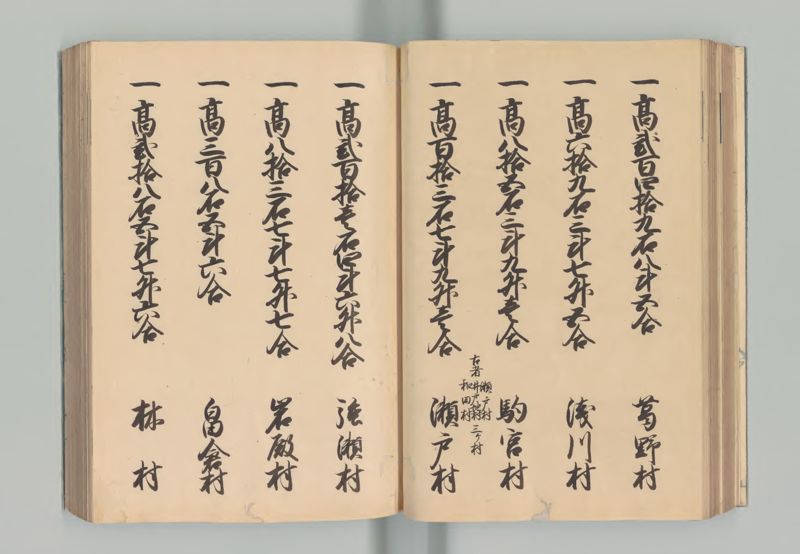 一 高弐百四拾九石八斗五合 葛野村
一 高六拾九石三斗七升五合 浅川村
一 高八拾五石三斗九升壱合 駒宮村
古者 瀬戸村 井尻村 和田村 三ヶ村
一 高百拾三石七斗九升壱合 瀬戸村
一 高弐百拾壱石四斗六升八合 強瀬村
一 高八拾三石七斗七升七合 岩殿村
一 高三百八石五斗六合 畠倉村
一 高弐拾八石五斗七升六合 林村